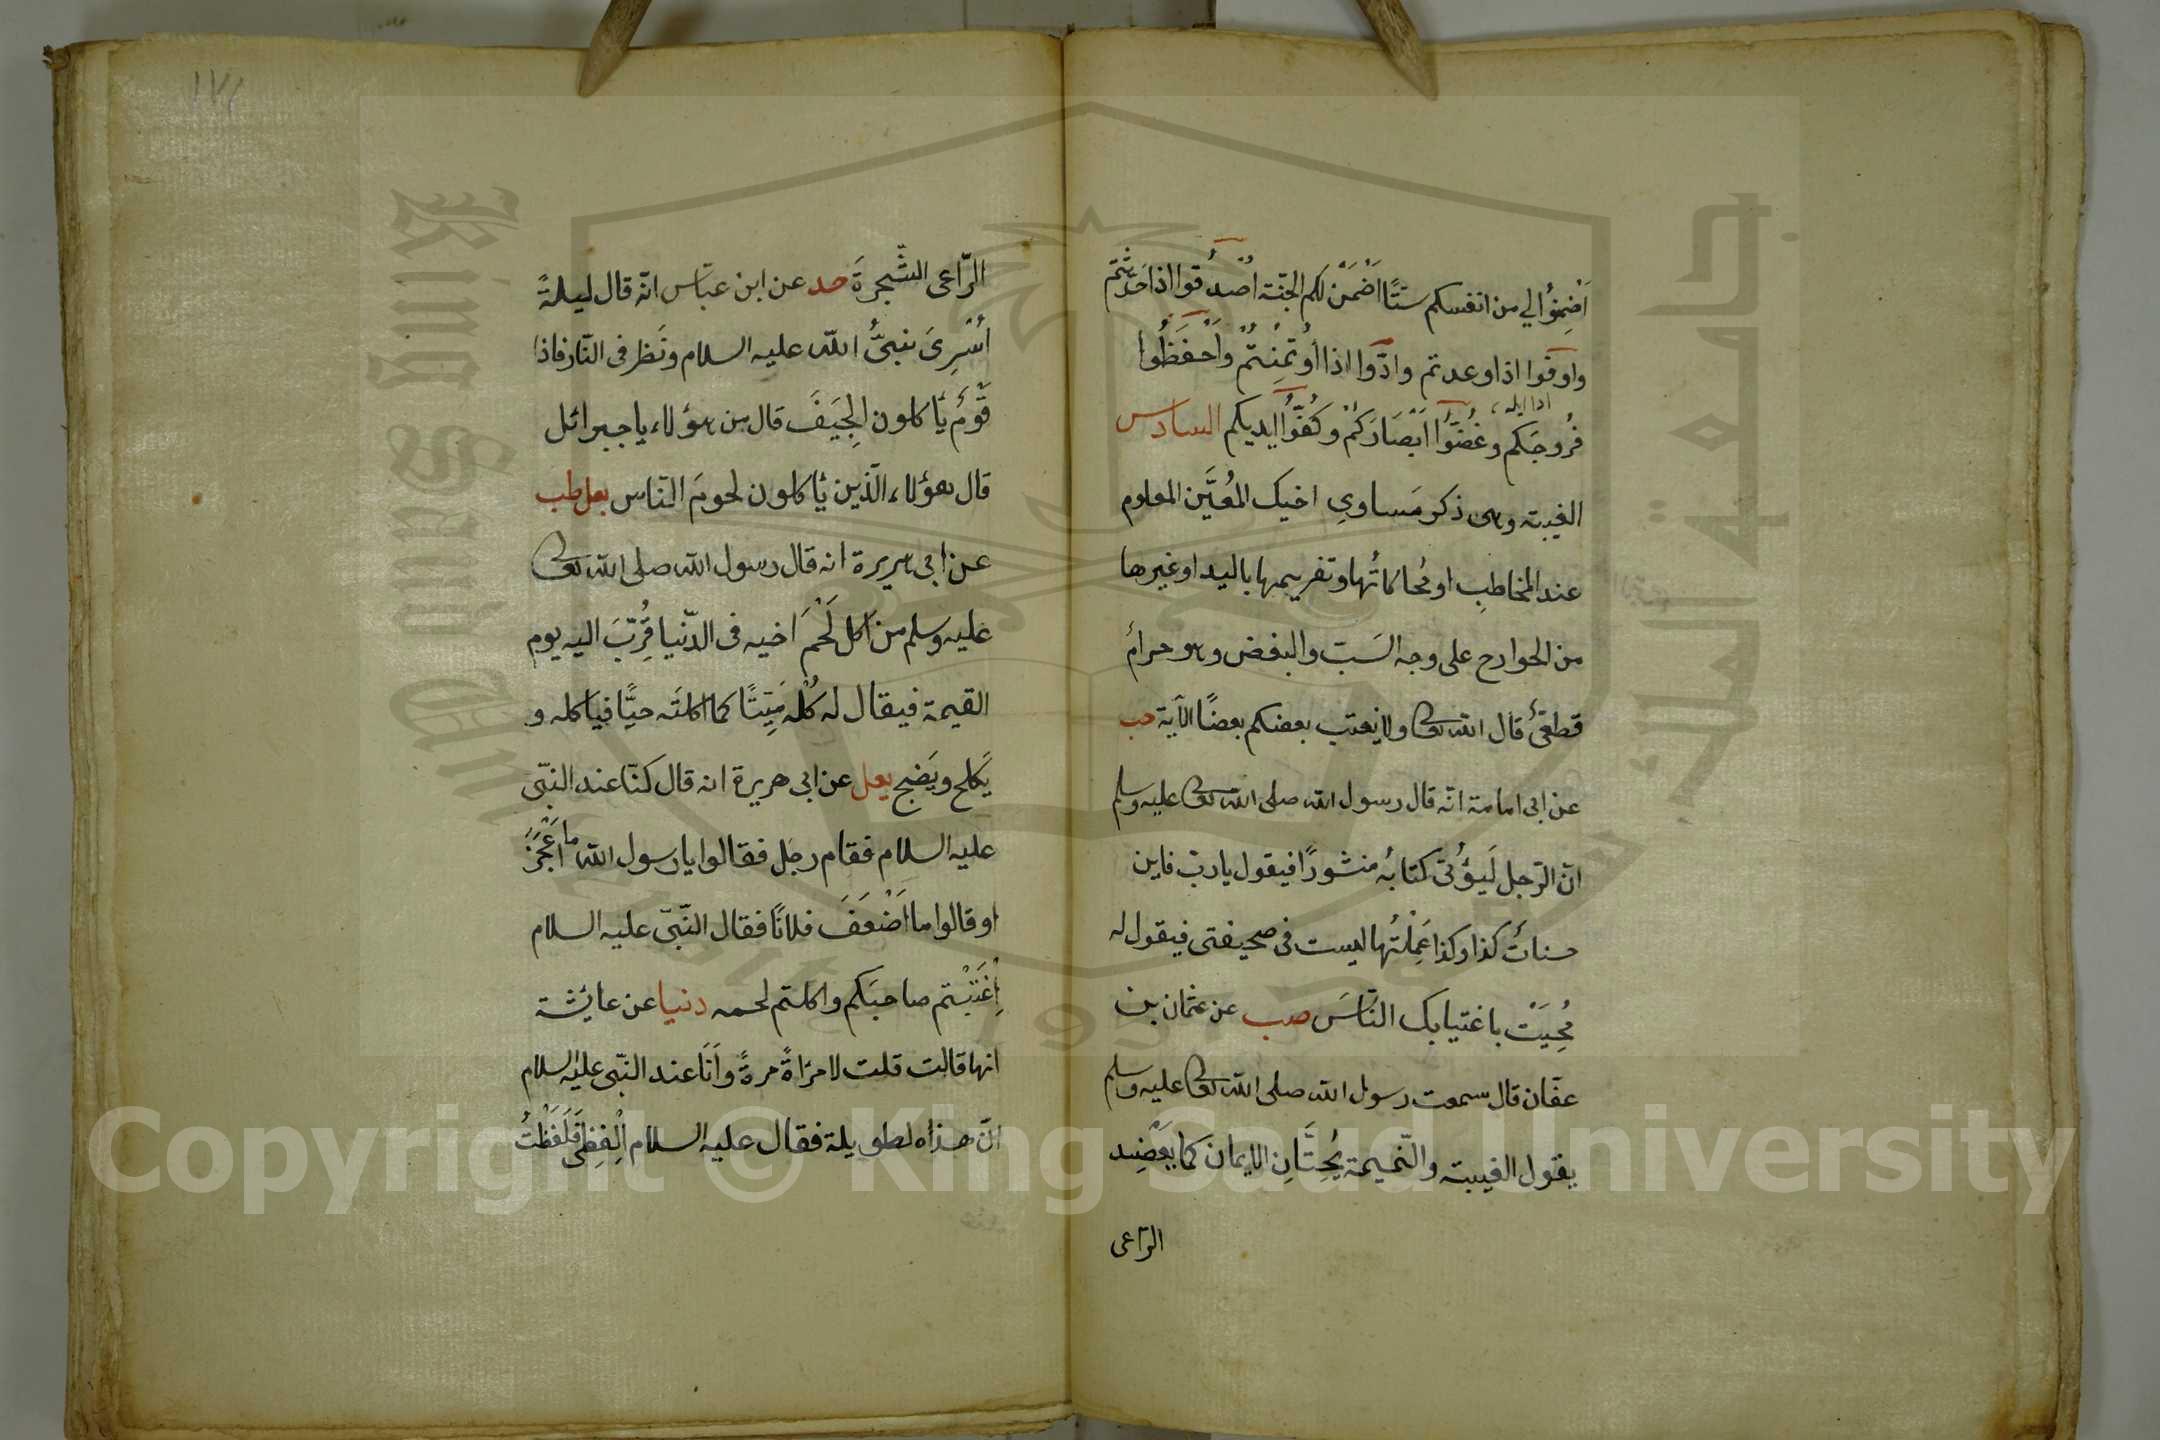 اَضْمِنُوا لي من انفسكم ستًّا اَضْمَنْ لكم الجنة اُصْدُقوا اذا حَدَّثتم
واوفوا اذا وعدتم وادّوا اذا اُوتُمِنْتُمْ وَاحْفَظُوا
فُرُوجَكم وغُضُّوا اَبْصَارَكُمْ وكُفُّوا ايديكم السادس
الغيبة وهى ذكر مَساوِي اخيك المُعَيَّن المعلوم
عند المخاطبِ او مُحاكاتُها وتفهيمها باليد او غيرها
من الجوارح على وجه السَبّ والبغض وهو حرامٌ
قطعىٌّ قال الله تعالى ولا يغتب بعضكم بعضًا الآية حب
عن ابى امامة انّه قال رسول الله صلى الله تعالى عليه وسلم
انّ الرّجل لَيُؤْتى كتابُه منشورًا فيقول يا ربّ فاين
حسناتُ كذا وكذا عَمِلْتُها ليست فى صحيفتى فيقول له
مُحِيَتْ باغتيابك النّاسَ صب عن عثمان بن
عفّان قال سمعت رسول الله صلى الله تعالى عليه وسلم
يقول الغيبة والنّميمة يَحُتَّانِ الايمان كما يَعْضِد
الرّاعى
١٧١
الرّاعى الشّجرةَ حد عن ابن عبّاس انّه قال ليلةً
اُسْرِىَ بنبىِّ الله عليه السلام ونَظر فى النّار فاذا
قَوْمٌ يَأكلون الجِيَفَ قال من هؤلاء يا جبرائل
قال هؤلاء الّذين يَأكلون لحومَ النّاس يعل طب
عن ابى هريرة انه قال رسول الله صلى الله تعالى
عليه وسلم من اكل لَحْمَ اخيه فى الدّنيا قُرِّبَ اليه يوم
القيمة فيقال له كُلْه مَيّتًا كما اكلتَه حيًّا فيأكله و
يَكلح ويَضج يعل عن ابى هريرة انه قال كنّا عند النبّى
عليه السلام فقام رجل فقالوا يا رسول الله ما اَعْجَزَ
او قالوا ما اَضْعَفَ فلانًا فقال النّبّى عليه السلام
اِغْتَبْتم صاحبَكم واكلتم لحمه دنيا عن عايشة
انها قالت قلت لامرَاةً مرةً وَاَنَا عند النبّى عليه السلام
انّ هذه لطويلة فقال عليه السلام اِلْفِظِى فَلَفَظْتُ
Copyright © King Saud University